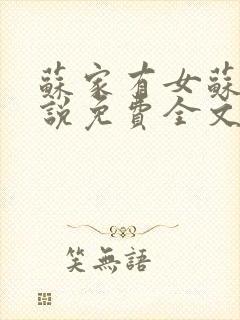 蘇家有女蘇
說免費全文
笑無語